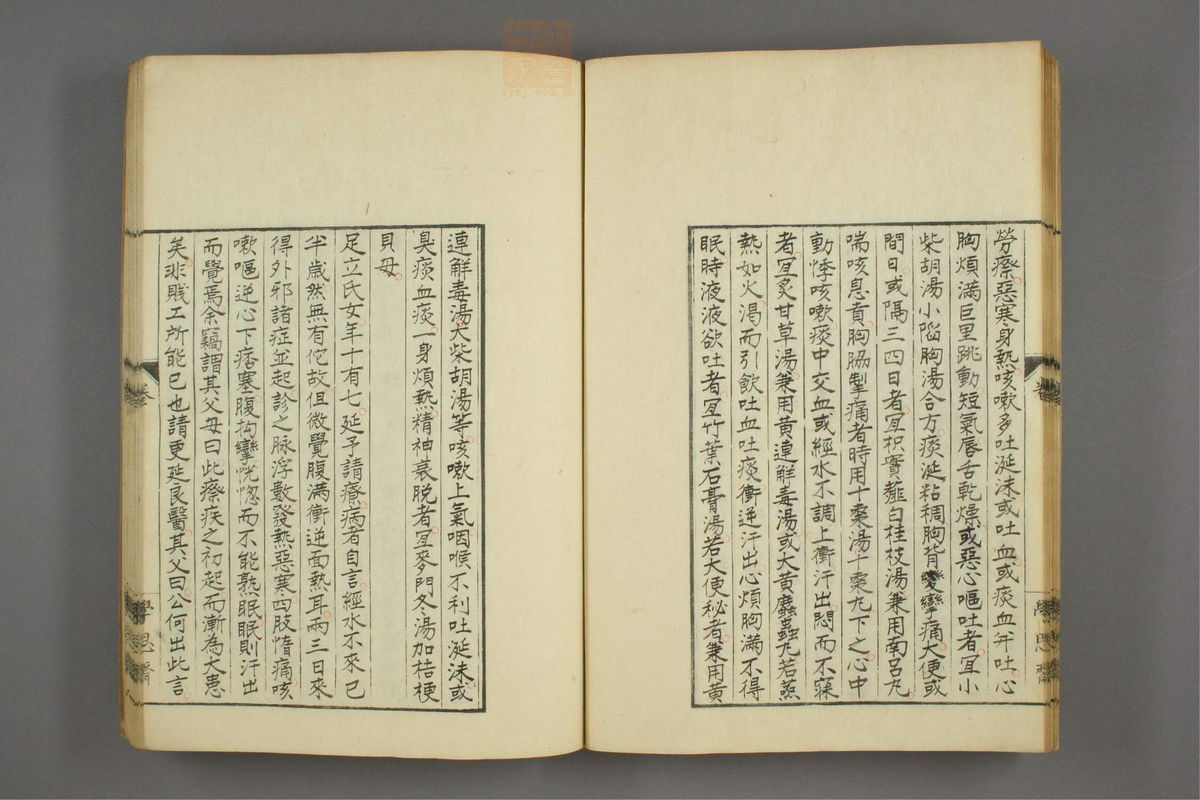 勞瘵惡寒身熱咳嗽多吐涎沫或吐血或痰血并吐心
胸煩滿巨里跳動短氣唇舌乾燥或惡心嘔吐者宜小
柴胡湯小陷胸湯合方痰涎粘稠胸背攣痛大便或
間日或隔三四日者宜枳實薤白桂枝湯兼用南呂丸
喘咳息賁胸脇掣痛者時用十棗湯十棗丸下之心中
動悸咳嗽痰中交血或經水不調上衝汗出悶而不寐
者宜炙甘草湯兼用黃連解毒湯或大黃䗪蟲丸若蒸
熱如火渴而引飲吐血吐痰衝逆汗出心煩胸滿不得
眠時液液欲吐者宜竹葉石膏湯若大便秘者兼用黃
連解毒湯大柴胡湯等咳嗽上氣咽喉不利吐涎沫或
臭痰血痰一身煩熱精神衰脫者宜麥門冬湯加桔梗
貝母
足立氏女年十有七延予請療病者自言經水不來已
半歲然無有佗故但微覺腹滿衝逆面熱耳兩三日來
得外邪諸症並起診之脉浮數發熱惡寒四肢惰痛咳
嗽嘔逆心下痞塞腹拘攣恍惚而不能熟眠眠則汗出
而覺焉余竊謂其父母曰此瘵疾之初起而漸為大患
矣非賤工所能已也請更延良醫其父曰公何出此言
卷
學思齋
卷
學思齋